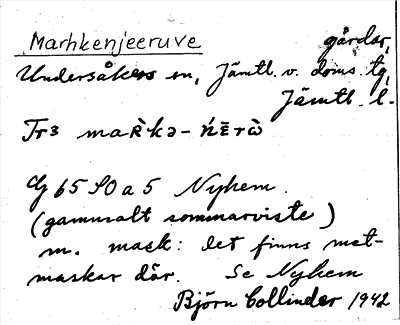 Marhkenjeeruve gårdar,
Undersåkers sn, Jämtl. v. doms. tg,
Jämtl. l.
Tr3 maR̀kə-ńērɯ̀
G 65 SO a 5 Nyhem.
(gammalt sommarviste)
m. mask: det finns met-
maskar där. Se Nyhem
Björn Collinder 1942